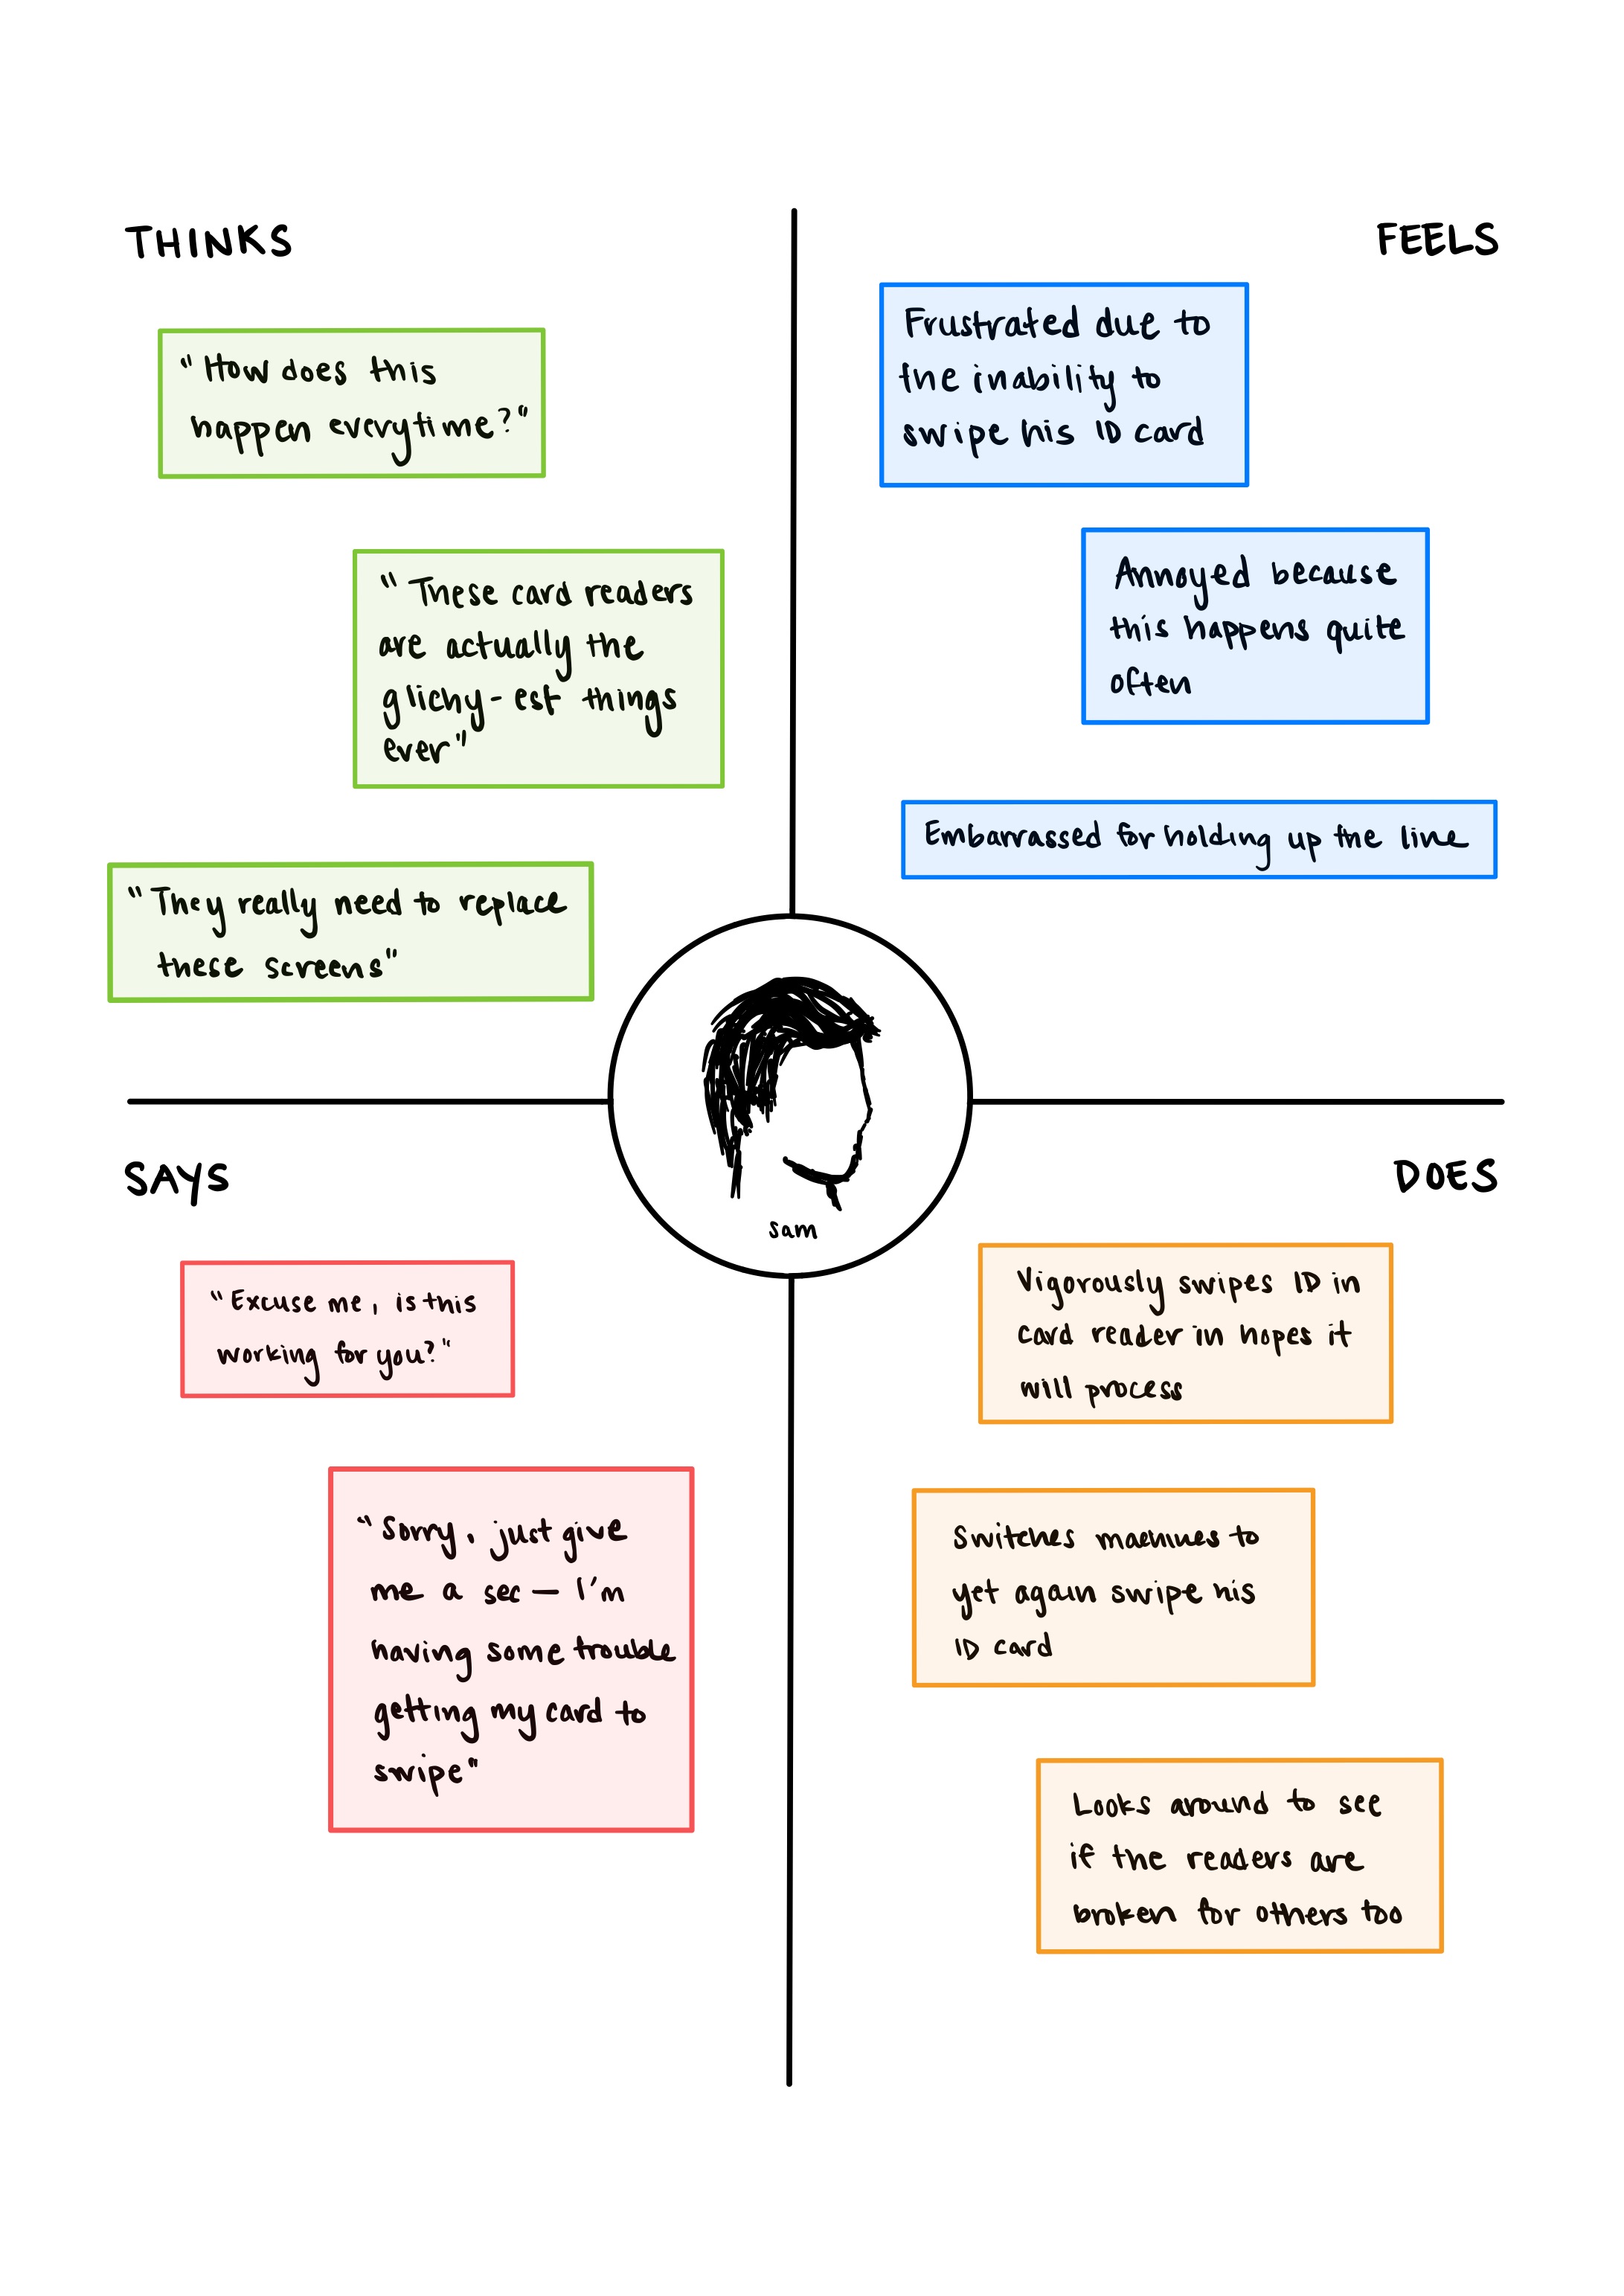 THINKS
"How does this
happen everytime?"
"These card readers
are actually the
glichy-est things
ever"
"They really need to replace
these screens"
FEELS
Frustrated due to
the inability to
swipe his ID card
Annoyed because
this happens quite
often
Embarrassed for holding up the line
sam
SAYS
"Excuse me, is this
working for you?"
"Sorry, just give
me a sec — I'm
having some trouble
getting my card to
swipe"
DOES
Vigorously swipes ID in
card reader in hopes it
will process
Switches machines to
yet again swipe his
ID card
Looks around to see
if the readers are
broken for others too